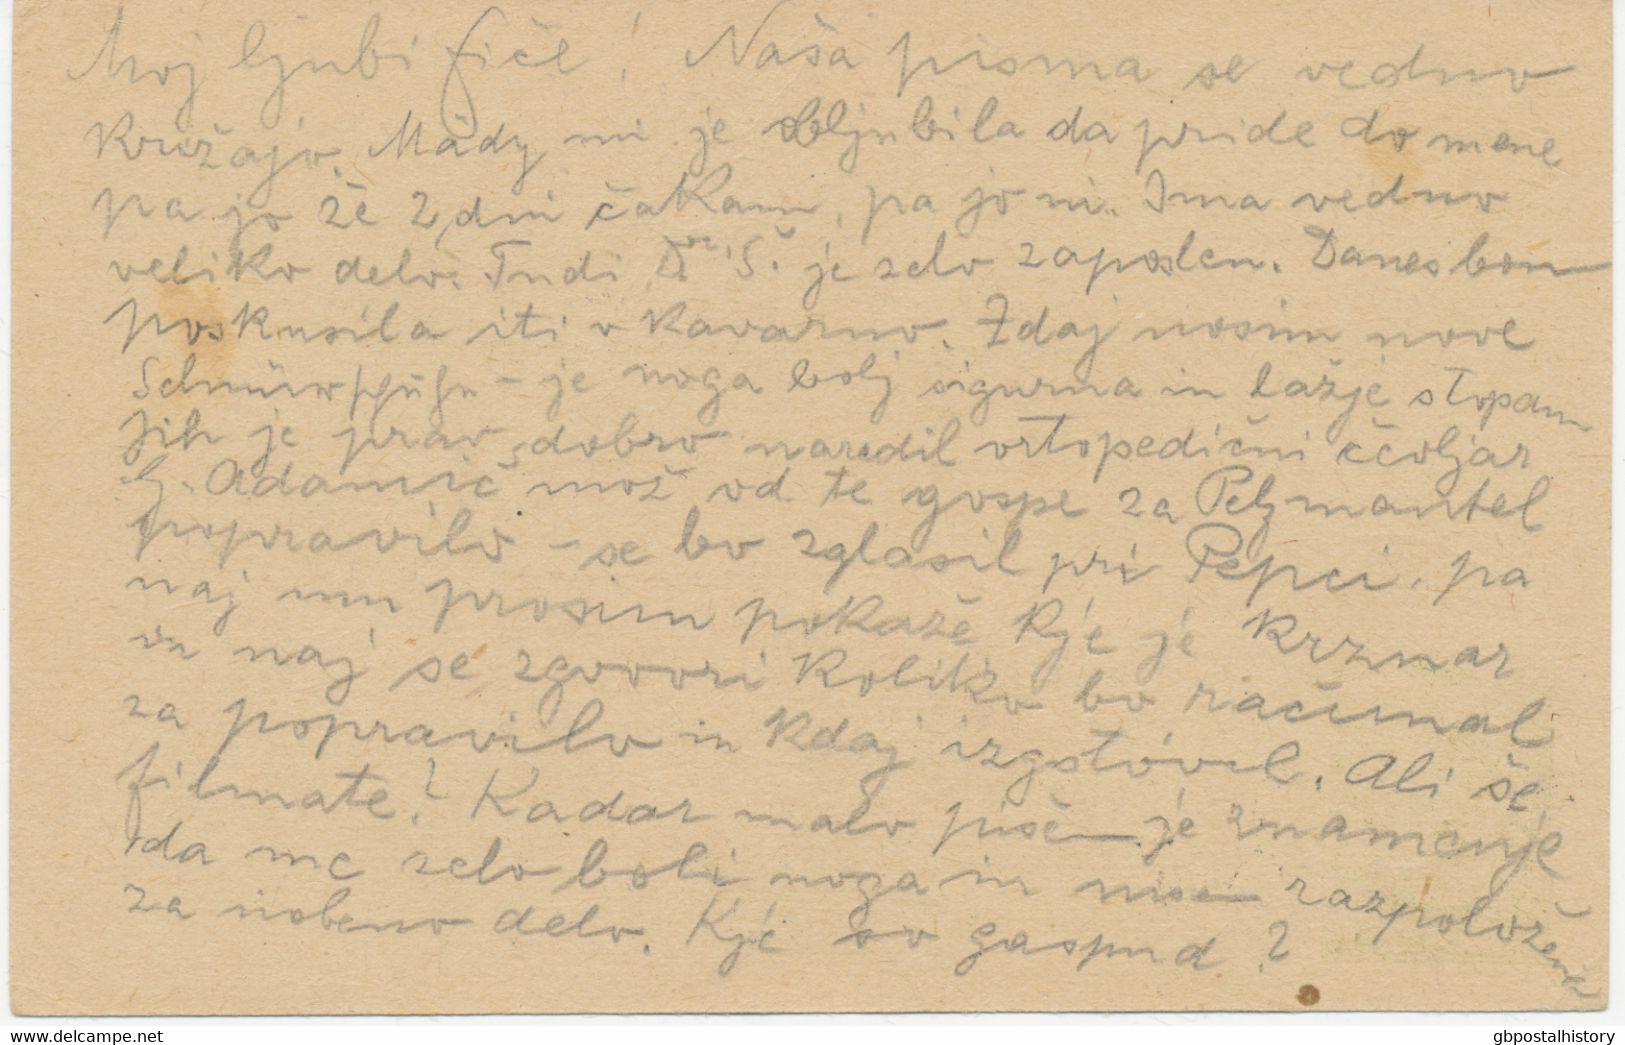 Moj ljubi fiče! Naša pisma se vedno
križajo. Mädy mi je obljubila da pride do mene
pa jo že 2 dni čakam, pa jo ni. Ima vedno
veliko delo. Tudi Dr. Š. je zelo zaposlen. Danes bom
poskusila iti v kavarno. Zdaj nosim nove
Schnürschuhe - je noga bolj sigurna in lažje stopam
Jih je prav dobro naredil ortopedični ččoljar
G. Adamič mož od te gospe za Pelzmantel
popravilo - se bo zglasil pri Pepci, pa
naj mu prosim pokaže Kje je Krznar
in naj se zgovori koliko bo računal
za popravilo in kdaj izgotóvil. Ali še
filmate? Kadar malo pišem je znamenje
da me zelo boli noga in nisem razpoložena
za nobeno delo. Kjé so gaspud?
www.delcampe.net
gbpostalhistory